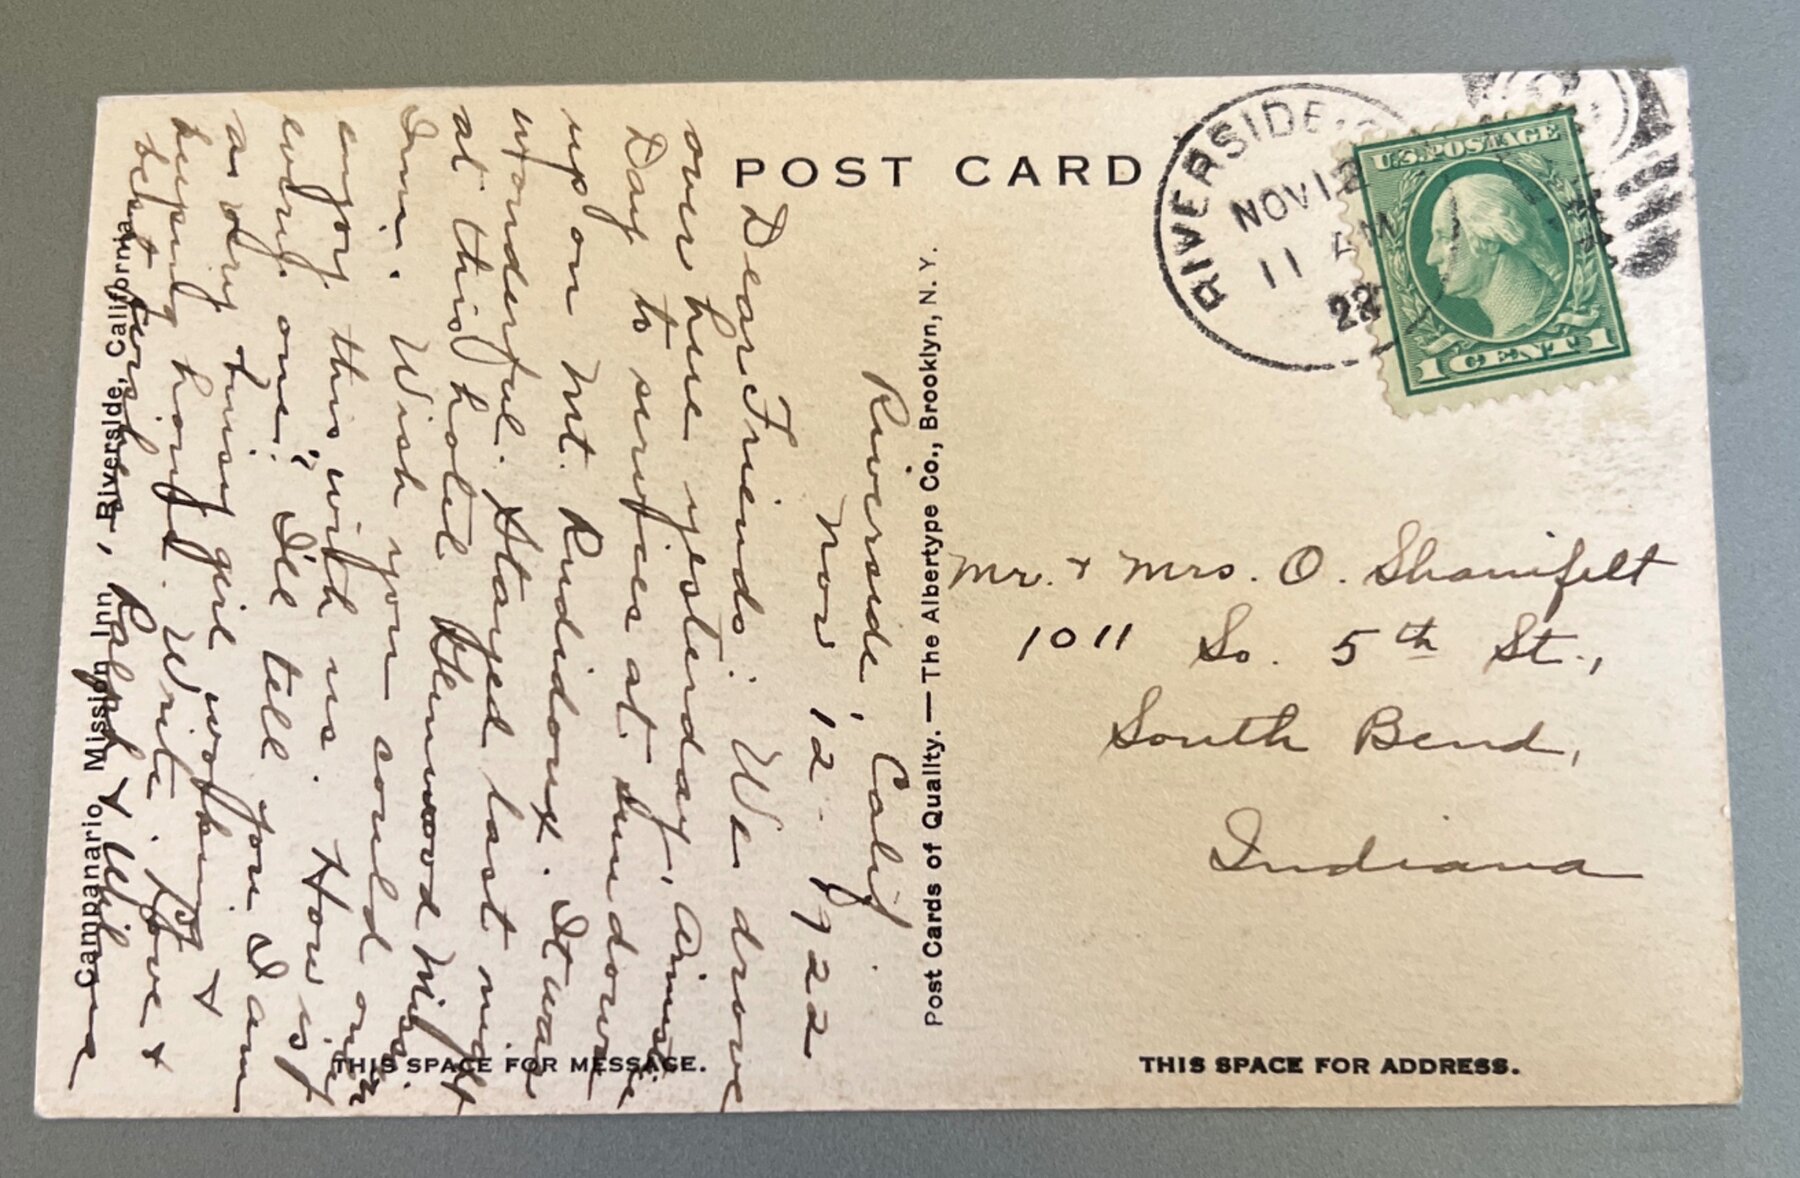 POST CARD
RIVERSIDE,
NOV 12
11 AM
22
U.S. POSTAGE
1 CENT 1
Riverside, Calif.
Nov 12 - 1922
Dear Friends: We drove
over here yesterday, Armistice
Day to services at Sundown
up on Mt. Rudidoux. It was
wonderful. Stayed last night
at this hotel Glenwood Mission
Inn. Wish you could
enjoy this with us. How is
every one? I'll tell you I am
a very busy girl working &
keeping house. Write. Love &
best wishes, Ralph & Wilma
Campanario Mission Inn, Riverside, California
Post Cards of Quality. — The Albertype Co., Brooklyn, N. Y.
Mr. & Mrs. O. Shanifelt
1011 So. 5th St.,
South Bend,
Indiana
THIS SPACE FOR MESSAGE.
THIS SPACE FOR ADDRESS.